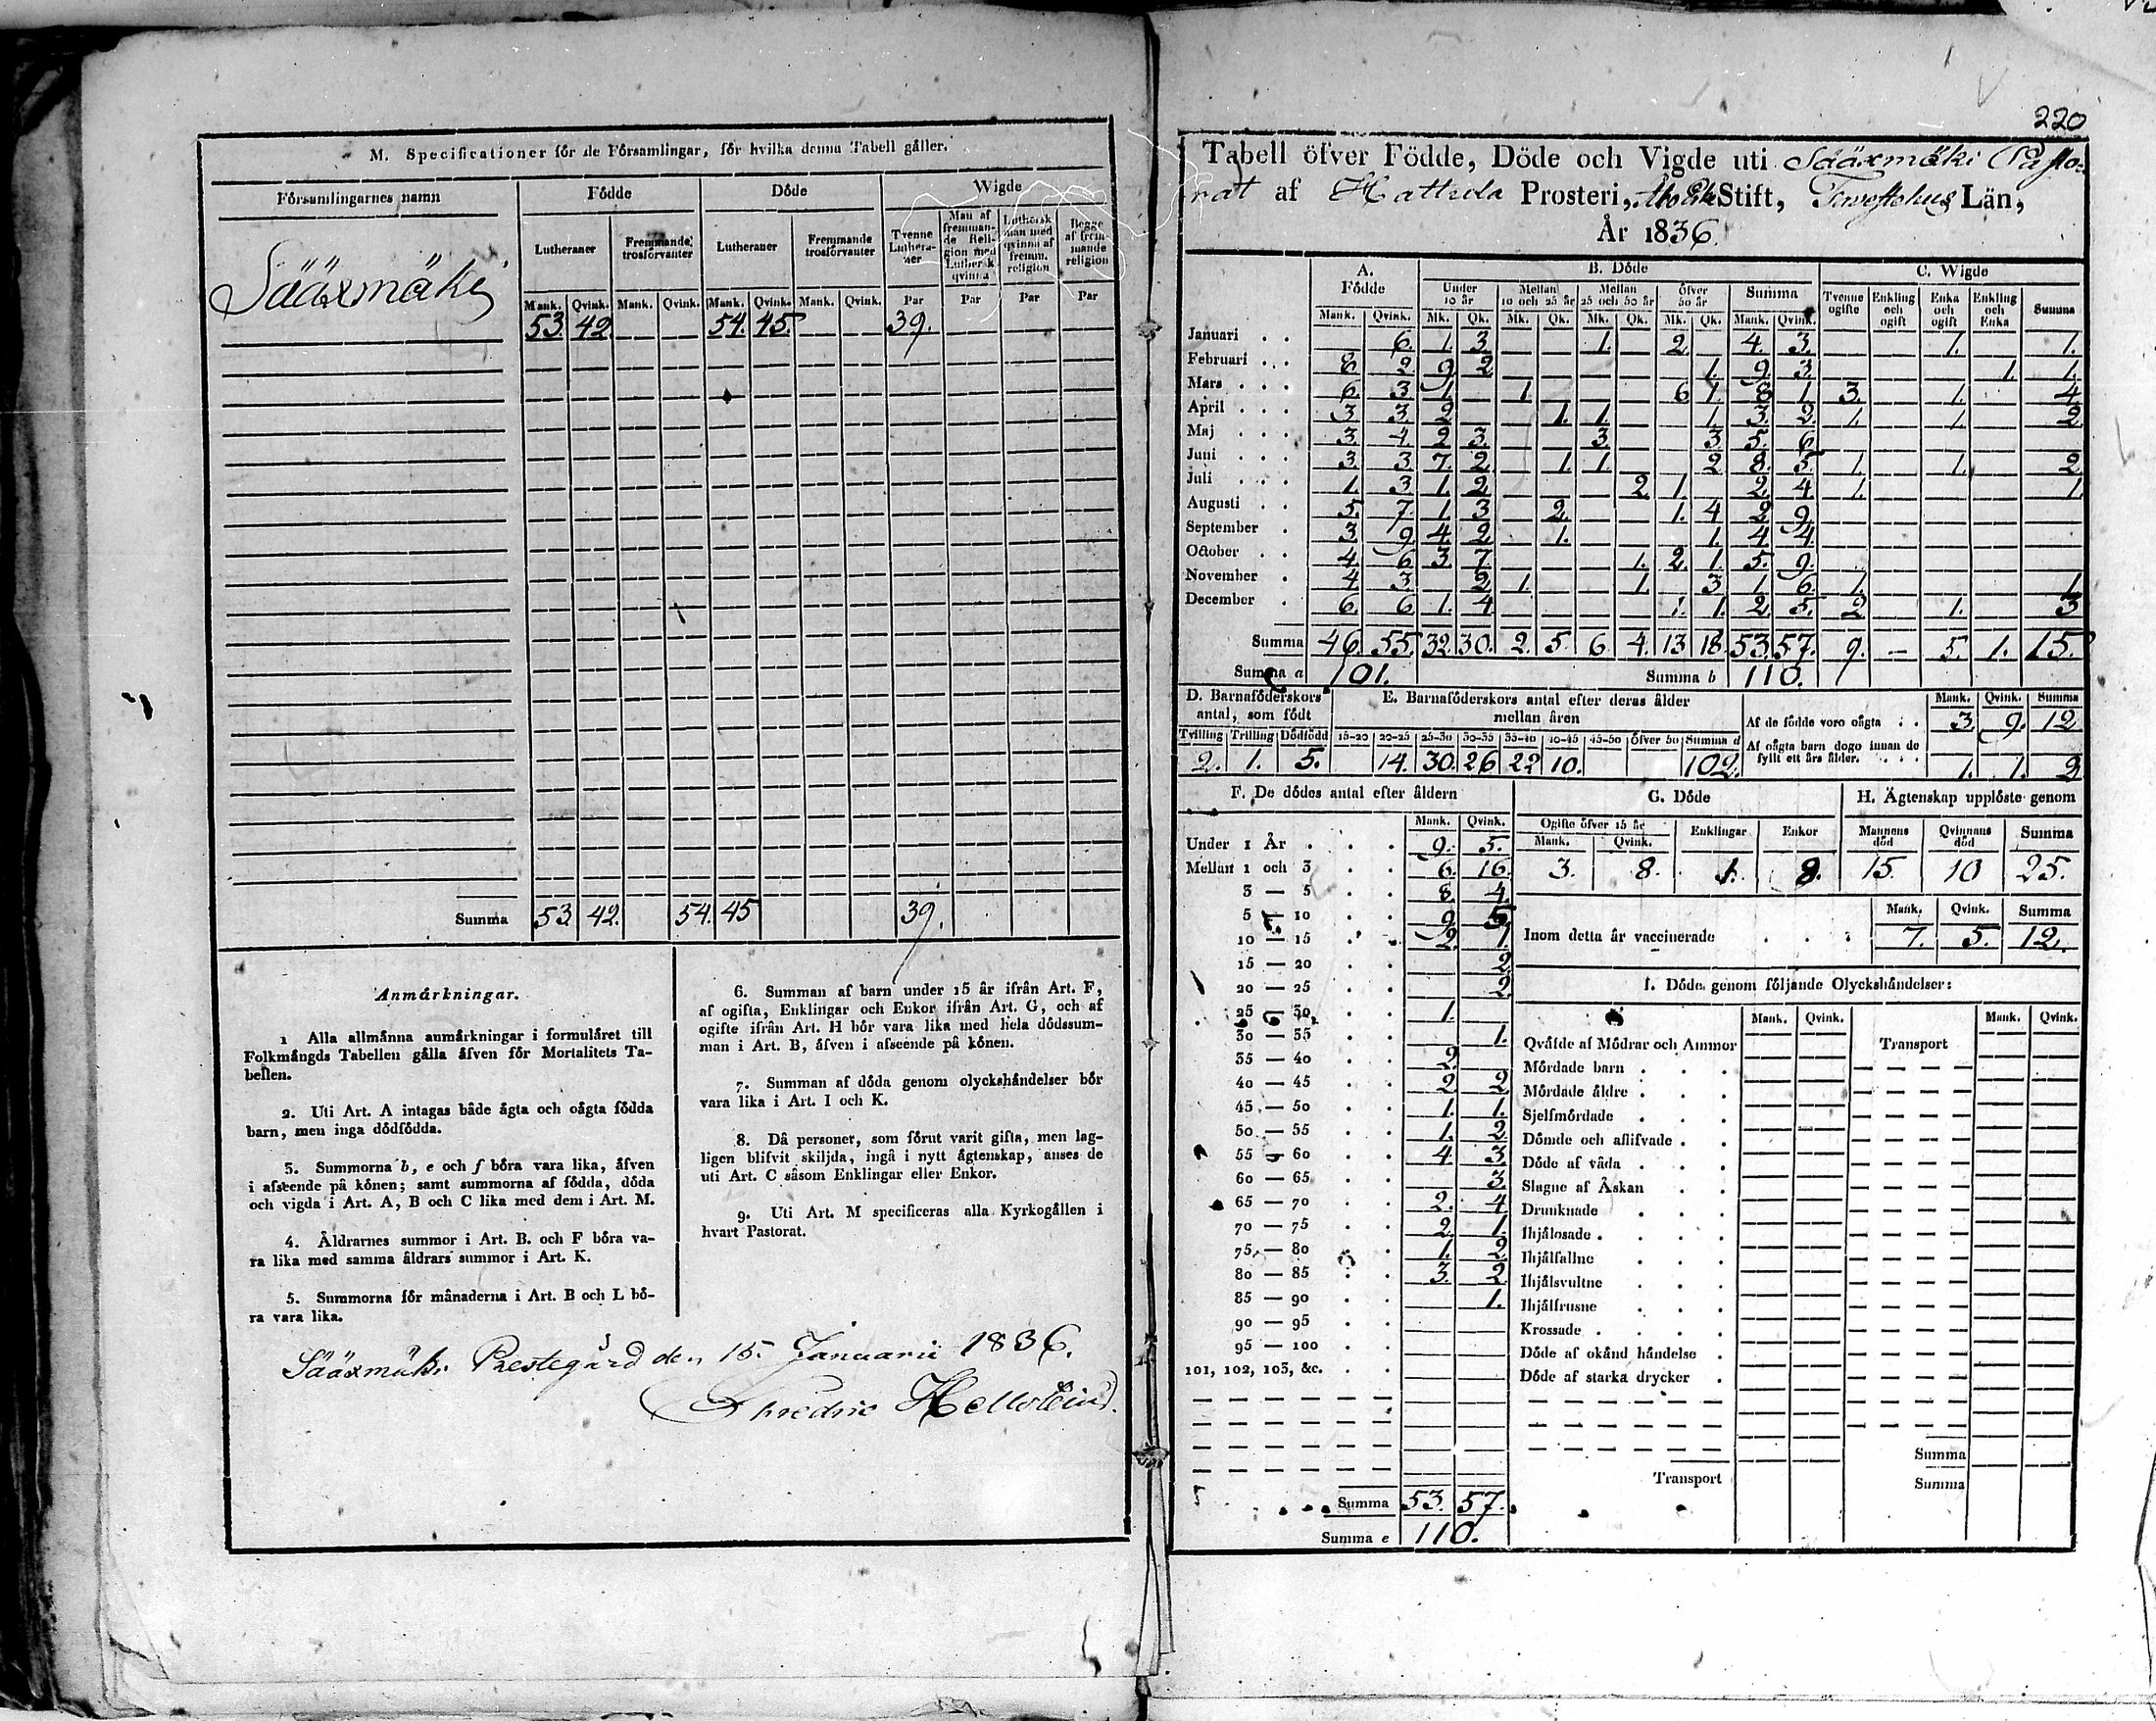 M. Specificationer för de Församlingar, för hvilka denna Tabell gäller.
Församlingarnes namn Födde Döde Wigde
Lutheraner Fremmande trosförvanter Lutheraner Fremmande trosförvanter Tvenne Lutheraner Man af fremmande Religion med Luthersk qvinna Luthersk man med qvinna af fremm. religion Begge af fremmande religion
Mank. Qvink. Mank. Qvink. Mank. Qvink. Mank. Qvink. Par Par Par Par
Sääxmäki 53 42 54. 45. 39.
Summa 53 42. 54. 45 39.
Anmärkningar.
1 Alla allmänna anmärkningar i formuläret till
Folkmängds Tabellen gälla äfven för Mortalitets Ta-
bellen.
2. Uti Art. A intagas både ägta och oägta födda
barn, men inga dödfödda.
3. Summorna b, e och f böra vara lika, äfven
i afseende på könen; samt summorna af födda, döda
och vigda i Art. A, B och C lika med dem i Art. M.
4. Åldrarnes summor i Art. B. och F böra va-
ra lika med samma åldrars summor i Art. K.
5. Summorna för månaderna i Art. B och L bö-
ra vara lika.
6. Summan af barn under 15 år ifrån Art. F,
af ogifta, Enklingar och Enkor ifrån Art. G, och af
ogifte ifrån Art. H bör vara lika med hela dödssum-
man i Art. B, äfven i afseende på könen.
7. Summan af döda genom olyckshändelser bör
vara lika i Art. I och K.
8. Då personer, som förut varit gifta, men lag-
ligen blifvit skiljda, ingå i nytt ägtenskap, anses de
uti Art. C såsom Enklingar eller Enkor.
9. Uti Art. M specificeras alla Kyrkogällen i
hvart Pastorat.
Sääxmäki Prestegård den 15. Januarii 1836.
220
Tabell öfver Födde, Döde och Vigde uti Sääxmäki Pasto-
rat af Hattula Prosteri, Åbo Stift, Tavastehus Län,
År 1836
A. Födde B. Döde C. Wigde
Under 10 år Mellan 10 och 25 år Mellan 25 och 50 år Öfver 50 år Summa Tvenne ogifte Enkling och ogift Enka och ogift Enkling och Enka Summa
Mank. Qvink. Mk. Qk. Mk. Qk. Mk. Qk. Mk. Qk. Mank. Qvink.
Januari 6. 1. 3. 1. 2. 4. 3. 1. 1.
Februari 8 2 9 2 1. 9. 3 1. 1.
Mars 6. 3 1. 1 6 1. 8 1 3. 1. 4
April 3 3. 2 1. 1. 1. 3. 2. 1. 1. 2
Maj 3. 4. 2 3. 3. 3 5. 6
Juni 3. 3 7. 2. 1. 1. 2. 8. 5. 1. 1. 2
Juli 1. 3 1. 2. 2 1. 2. 4. 1. 1
Augusti 5. 7. 1. 3 2. 1. 4 2 9.
September 3 9 4 2. 1. 1. 4 4.
October 4. 6 3 7 1. 2. 1. 5. 9.
November 4 3. 2. 1. 1. 3 1 6. 1. 1
December 6. 6 1. 4. 1. 1. 2. 5. 2 1. 3
Summa 46. 55. 32. 30. 2. 5. 6. 4. 13 18. 53. 57. 9. – 5. 1. 15.
Summa a 101. Summa b 110.
D. Barnaföderskors antal, som födt
Tvilling Trilling Dödfödd
2. 1. 5.
E. Barnaföderskors antal efter deras ålder
mellan åren
15–20 20–25 25–30 30–35 35–40 40–45 45–50 Öfver 50 Summa d
14. 30. 26 22 10. 102.
Mank. Qvink. Summa
Af de födde voro oägta 3. 9. 12
Af oägta barn dogo innan de
fyllt ett års ålder. 1. 1. 2
F. De dödes antal efter åldern
Mank. Qvink.
Under 1 År 9. 5.
Mellan 1 och 3 6. 16.
3 — 5 8. 4.
5 — 10 9 5
10 — 15 2. 1.
15 — 20 2
20 — 25 2.
25 — 30 1.
30 — 35 1.
35 — 40 2.
40 — 45 2. 2
45 — 50 1. 1.
50 — 55 1. 2
55 — 60 4. 3.
60 — 65 3.
65 — 70 2. 4
70 — 75 2. 1.
75 — 80 1. 2.
80 — 85 3. 2
85 — 90 1.
90 — 95
95 — 100
101, 102, 103, &c.
Summa 53. 57.
Summa e 110.
G. Döde
Ogifte öfver 15 år Enklingar Enkor
Mank. Qvink.
3. 8. 1. 8.
H. Ägtenskap upplöste genom
Mannens död Qvinnans död Summa
15 10 25.
Mank. Qvink. Summa
Inom detta år vaccinerade 7. 5. 12.
I. Döde genom följande Olyckshändelser:
Mank. Qvink. Mank. Qvink.
Qväfde af Mödrar och Ammor Transport
Mördade barn
Mördade äldre
Sjelfmördade
Dömde och aflifvade
Döde af våda
Slagne af Åskan
Drunknade
Ihjälosade
Ihjälfallne
Ihjälsvultne
Ihjälfrusne
Krossade
Döde af okänd händelse
Döde af starka drycker
Summa
Transport Summa